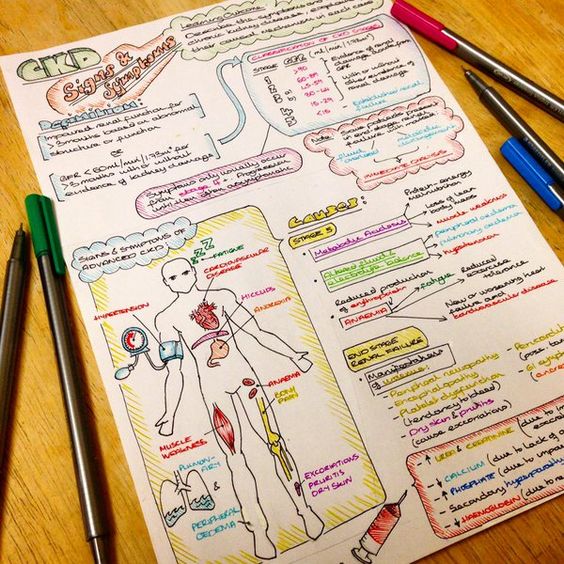 CKD
Signs &
Symptoms
Learning Outcome:
Describe the symptoms and
chronic kidney disease, explain
their causal mechanism in each case
Definition:
Impaired renal function for
>3 months based on abnormal
structure or function
OR
GFR <60ml/min/1.73m² for
>3 months with or without
evidence of kidney damage
CLASSIFICATION OF CKD STAGES
STAGE GFR (ml/min/1.73m²)
1 >90
2 60-89
45-59
30-44
4 15-29
5 <15
Evidence of renal
damage
With or without
other evidence of
renal damage
Established renal
failure
Symptoms only usually occur
from stage 4 + Progression
until then often asymptomatic
Note: Some patients present
in end stage renal
failure with
fluid
overload
Electrolyte
derangement
IMMEDIATE DIALYSIS
SIGNS & SYMPTOMS OF
ADVANCED CKD
ZZ
FATIGUE
CARDIOVASCULAR
DISEASE
HYPERTENSION
HICCUPS
ANOREXIA
ANAEMIA
BONE
PAIN
MUSCLE
WEAKNESS
PULMONARY
PERIPHERAL
OEDEMA
EXCORIATIONS
PRURITIS
DRY SKIN
Causes:
STAGE 5
Metabolic Acidosis
Protein-energy
malnutrition
Loss of lean
body mass
muscle weakness
Altered fluid &
electrolyte balance
peripheral oedema
pulmonary oedema
hypertension
Reduced production
of erythropoietin
ANAEMIA
fatigue
Reduced
exercise
tolerance
New or worsening heart
failure and
cardiovascular disease
END STAGE
RENAL FAILURE
Manifestations
of uraemia:
- Peripheral neuropathy
- Encephalopathy
- Platelet dysfunction
(tendency to bleed)
- Dry skin & pruritis
(cause excoriations)
- Pericarditis
- GI symptoms
↑ UREA & CREATININE (due to
↓ CALCIUM (due to lack of
↑ PHOSPHATE (due to
- Secondary hyperparathyroidism
↓ HAEMOGLOBIN (due to